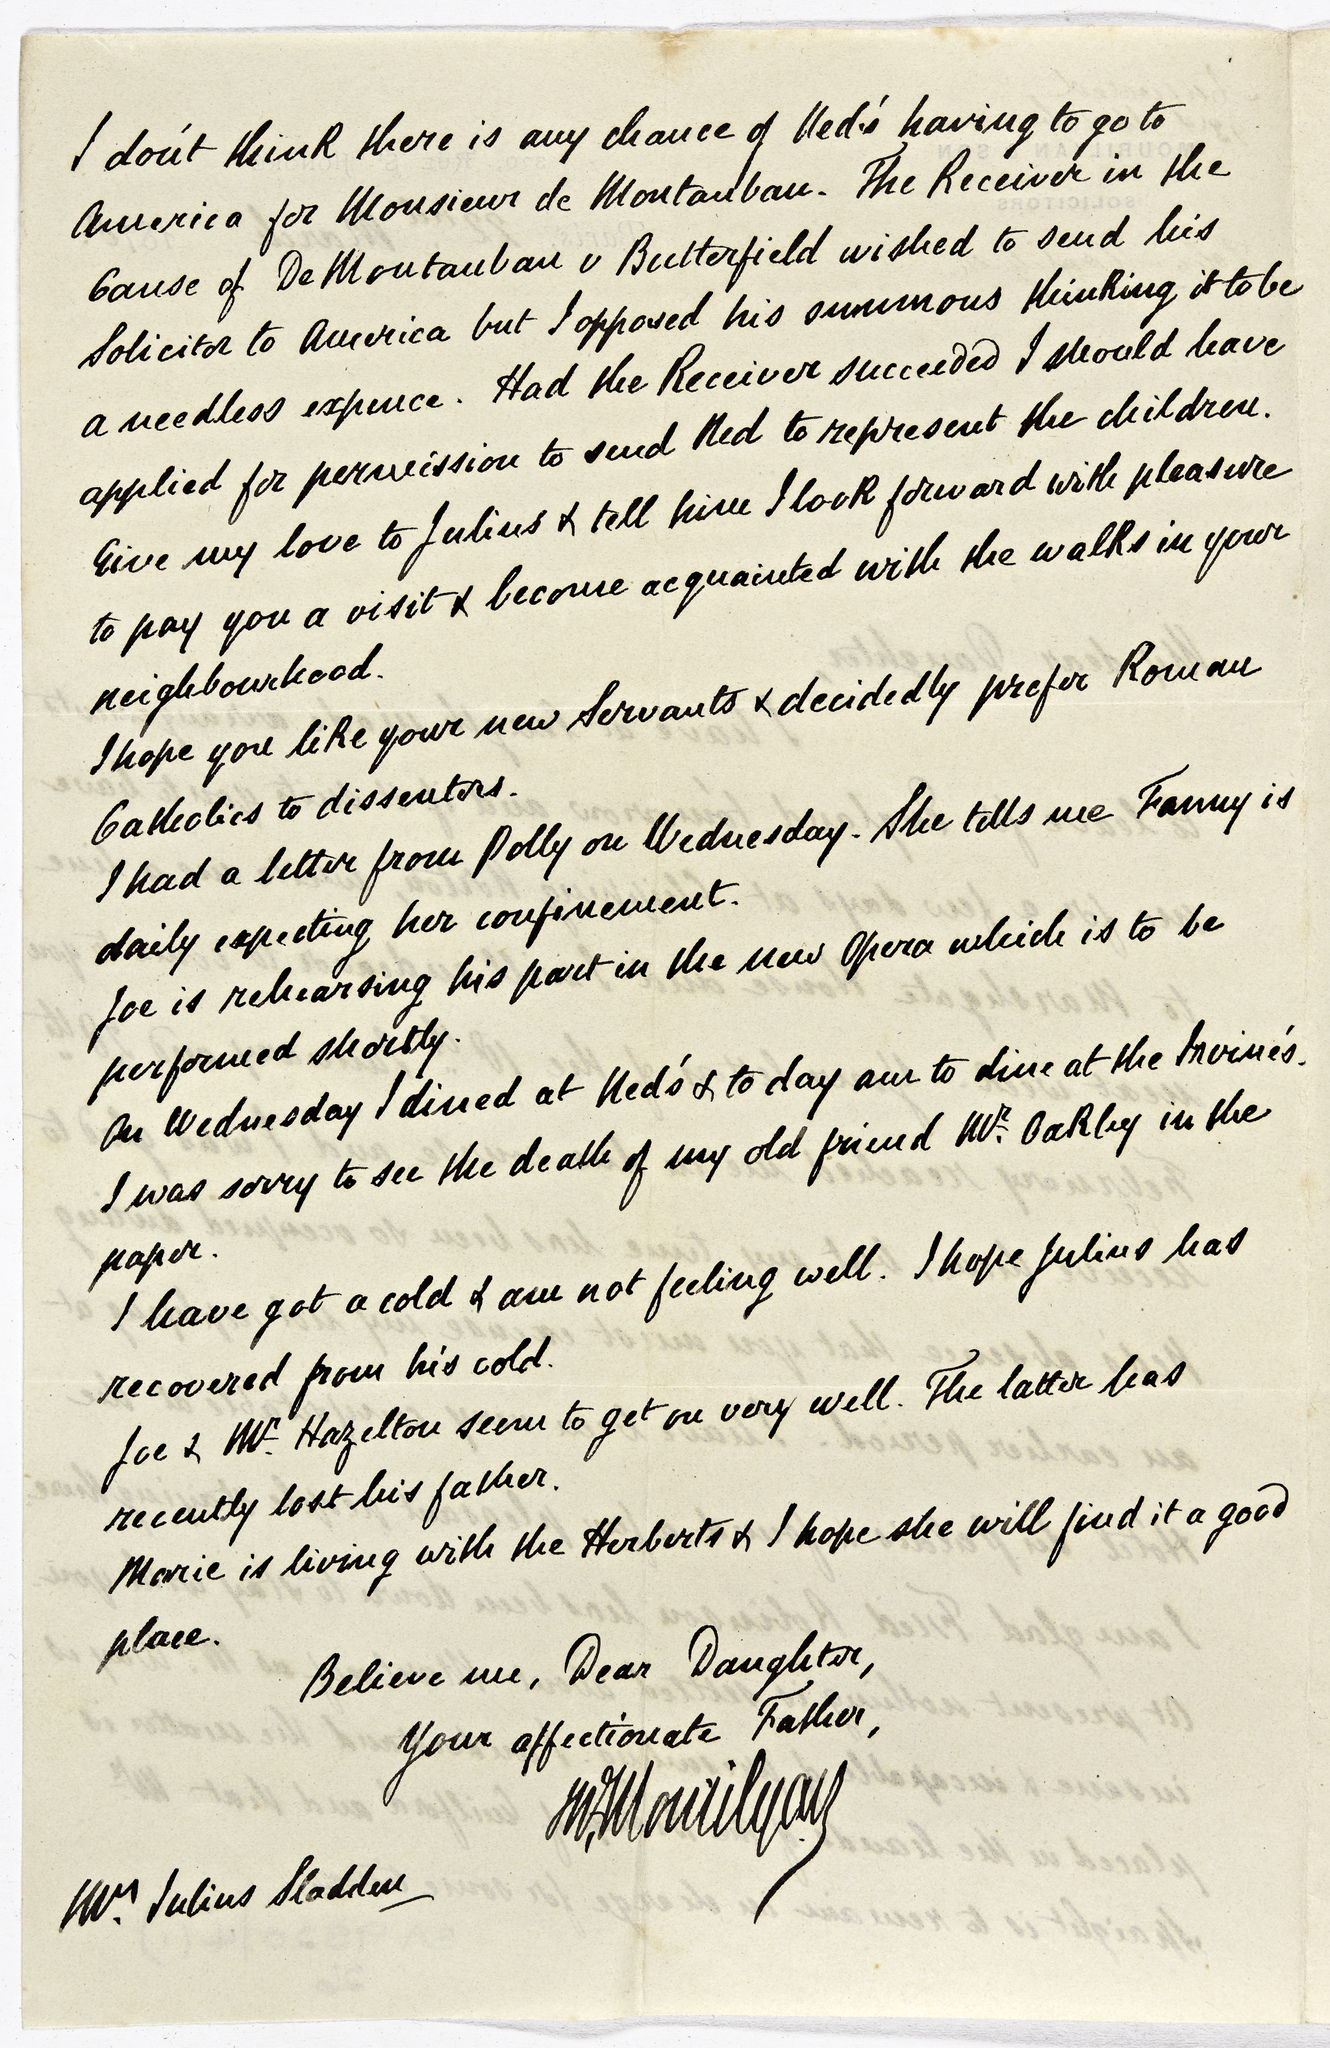 I don't think there is any chance of Ned's having to go to
America for Monsieur de Montauban. The Receiver in the
Cause of De Montauban v Butterfield wished to send his
Solicitor to America but I opposed his summons thinking it to be
a needless expence. Had the Receiver succeeded I should have
applied for permission to send Ned to represent the children.
Give my love to Julius & tell him I look forward with pleasure
to pay you a visit & become acquainted with the walks in your
neighbourhood.
I hope you like your new Servants & decidedly prefer Roman
Catholics to dissentors.
I had a letter from Polly on Wednesday. She tells me Fanny is
daily expecting her confinement.
Joe is rehearsing his part in the new Opera which is to be
performed shortly.
On Wednesday I dined at Ned's & to day am to dine at the Irvine's.
I was sorry to see the death of my old friend Mr. Oakley in the
paper.
I have got a cold & am not feeling well. I hope Julius has
recovered from his cold.
Joe & Mr. Hazelton seem to get on very well. The latter has
recently lost his father.
Marie is living with the Herberts & I hope she will find it a good
place.
Believe me, Dear Daughter,
Your affectionate Father,
Mourilyan
Mrs. Julius Sladden